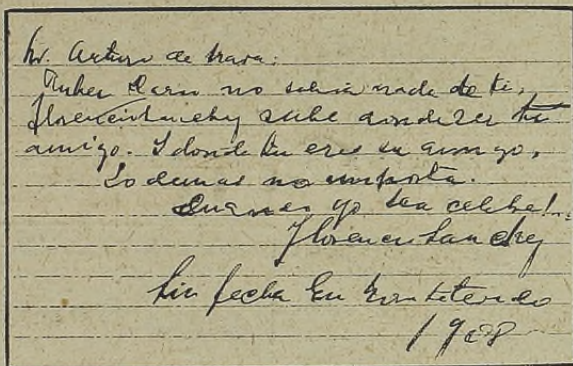 Sr. Arturo de nava:
Ruben Dario no sabia nada de ti,
Florencio Sanchez sabe donde es tu
amigo. Y donde tu eres su amigo,
Lo demas no importa.
Cuando yo sea celebre!..
Florencio Sanchez
Sin fecha En Montevideo
1908